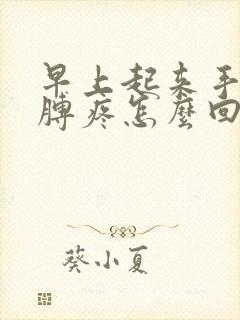 早上起来手
膊疼怎麼回
葵小夏